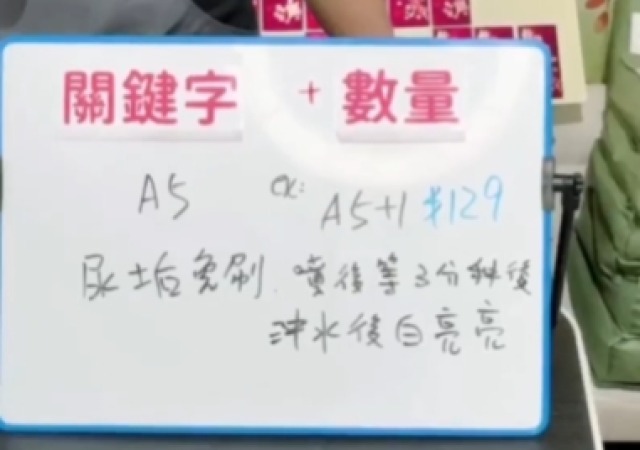 關鍵字 + 數量
A5 ex: A5+1 $129
尿垢免刷.噴後等3分鈡後
沖水後白亮亮